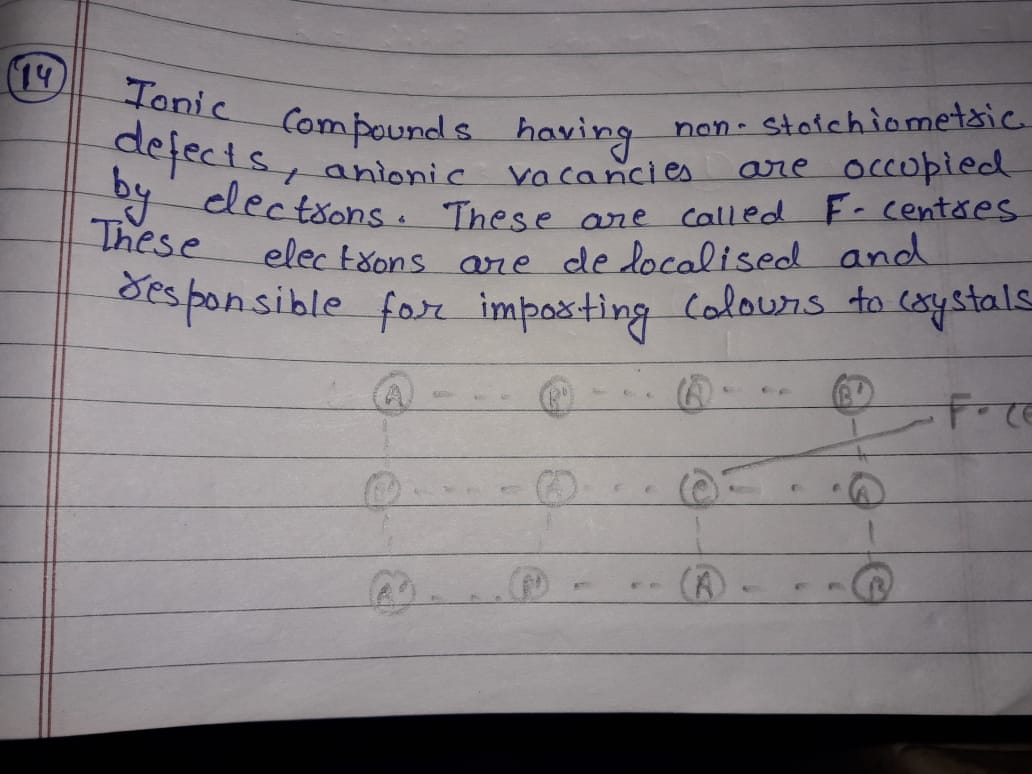 14
Ionic Compounds having non-stoichiometric
defects, anionic vacancies are occupied
by electrons. These are called F-centres
These electrons are delocalised and
responsible for imparting Colours to crystals
A B' A B'
F-ce
A e A
A B